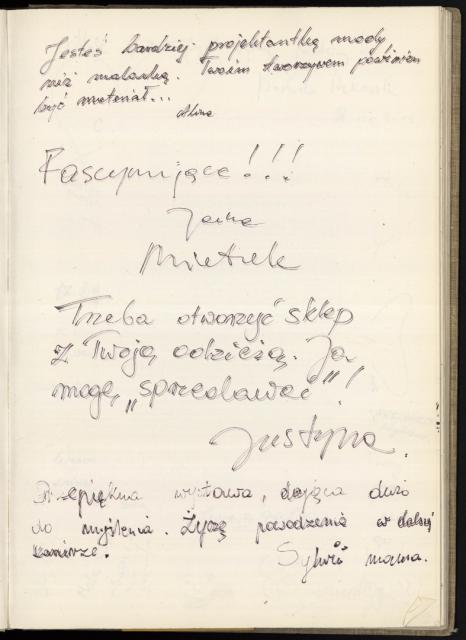 Jesteś bardziej projektantką mody
niż malarką. Twoim tworzywem powinien
być materiał...
Alina
Fascynujące!!!
Jaina
Mietek
Trzeba otworzyć sklep
z Twoją odzieżą. Ja
mogę „sprzedawać"!
Justyna.
Przepiękna wystawa, dająca dużo
do myślenia. Życzę powodzenia w dalszej
karierze.
Sylwii mama.